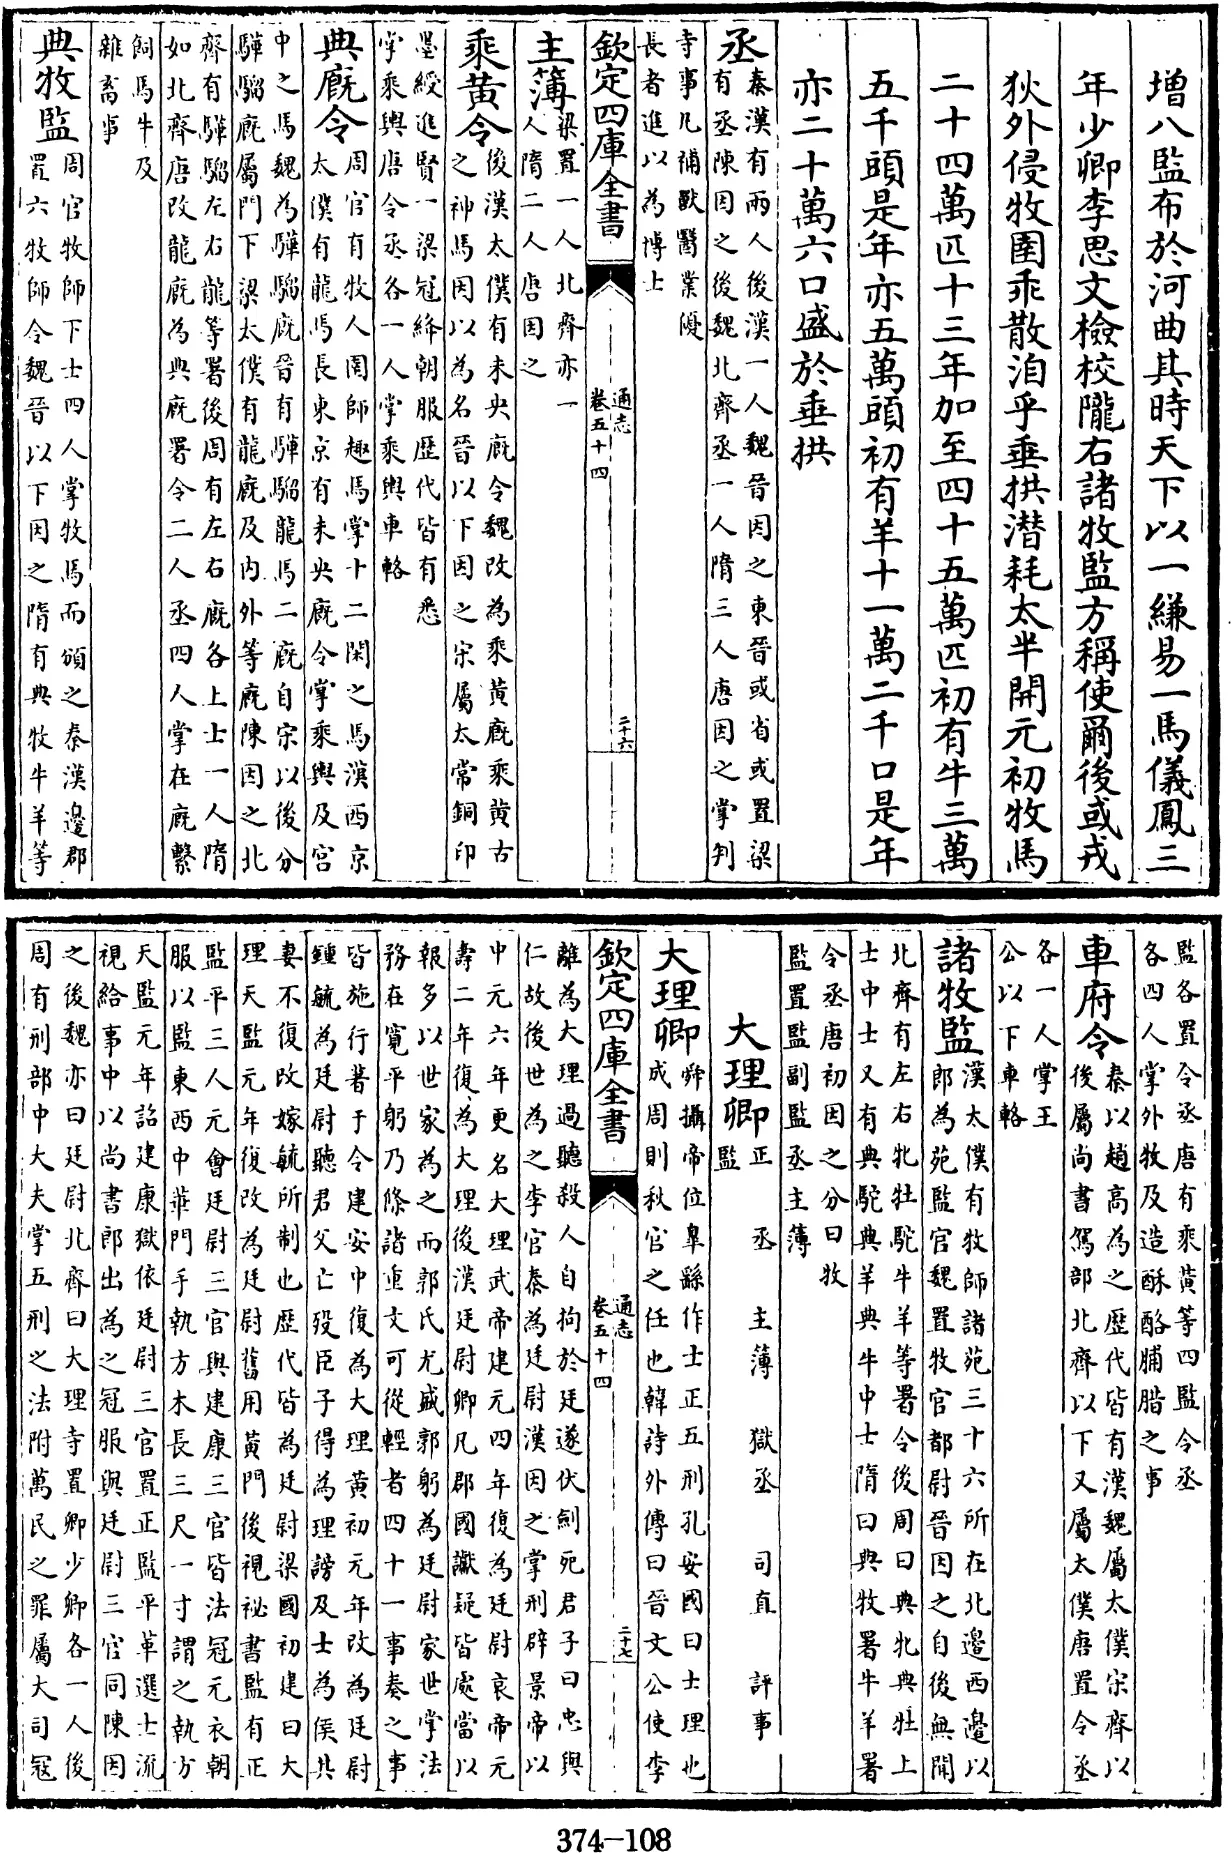 增八監布於河曲其時天下以一縑易一馬儀鳳三
年少卿李思文檢校隴右諸牧監方稱使爾後或戎
狄外侵牧圉乖散洎乎垂拱潛耗太半開元初牧馬
二十四萬匹十三年加至四十五萬匹初有牛三萬
五千頭是年亦五萬頭初有羊十一萬二千口是年
亦二十萬六口盛於垂拱
丞秦漢有兩人後漢一人魏晉因之東晉或省或置梁
有丞陳因之後魏北齊丞一人隋三人唐因之掌判
寺事凡補獸醫業優
長者進以為博士
欽定四庫全書
通志
卷五十四
二十六
主簿梁置一人北齊亦一
人隋二人唐因之
乘黃令後漢太僕有未央廐令魏改為乘黃廐乘黃古
之神馬因以為名晉以下因之宋屬太常銅印
墨綬進賢一梁冠絳朝服歷代皆有悉
掌乘輿唐令丞各一人掌乘輿車輅
典廐令周官有牧人圉師趣馬掌十二閑之馬漢西京
太僕有龍馬長東京有未央廐令掌乘輿及宮
中之馬魏為驊騮廐晉有驊騮龍馬二廐自宋以後分
驊騮廐屬門下梁太僕有龍廐及內外等廐陳因之北
齊有驊騮左右龍等署後周有左右廐各上士一人隋
如北齊唐改龍廐為典廐署令二人丞四人掌在廐繫
飼馬牛及
雜畜事
典牧監周官牧師下士四人掌牧馬而頒之秦漢邊郡
置六牧師令魏晉以下因之隋有典牧牛羊等
監各置令丞唐有乘黃等四監令丞
各四人掌外牧及造酥酪脯腊之事
車府令秦以趙高為之歷代皆有漢魏屬太僕宋齊以
後屬尚書駕部北齊以下又屬太僕唐置令丞
各一人掌王
公以下車輅
諸牧監漢太僕有牧師諸苑三十六所在北邊西邊以
郎為苑監官魏置牧官都尉晉因之自後無聞
北齊有左右牝牡駝牛羊等署令後周曰典牝典牡上
士中士又有典駝典羊典牛中士隋曰典牧署牛羊署
令丞唐初因之分曰牧
監置監副監丞主簿
大理卿正 丞 主簿 獄丞 司直 評事
監
大理卿舜攝帝位臯繇作士正五刑孔安國曰士理也
成周則秋官之任也韓詩外傳曰晉文公使李
欽定四庫全書
通志
卷五十四
二十七
離為大理過聽殺人自拘於廷遂伏劍死君子曰忠與
仁故後世為之李官秦為廷尉漢因之掌刑辟景帝以
中元六年更名大理武帝建元四年復為廷尉哀帝元
壽二年復為大理後漢廷尉卿凡郡國讞疑皆處當以
報多以世家為之而郭氏尤盛郭躬為廷尉家世掌法
務在寬平躬乃條諸重文可從輕者四十一事奏之事
皆施行著于令建安中復為大理黃初元年改為廷尉
鍾毓為廷尉聽君父亡歿臣子得為理謗及士為侯其
妻不復改嫁毓所制也歷代皆為廷尉梁國初建曰大
理天監元年復改為廷尉舊用黃門後視祕書監有正
監平三人元會廷尉三官與建康三官皆法冠元衣朝
服以監東西中華門手執方木長三尺一寸謂之執方
天監元年詔建康獄依廷尉三官置正監平革選士流
視給事中以尚書郎出為之冠服與廷尉三官同陳因
之後魏亦曰廷尉北齊曰大理寺置卿少卿各一人後
周有刑部中大夫掌五刑之法附萬民之罪屬大司寇
374-108